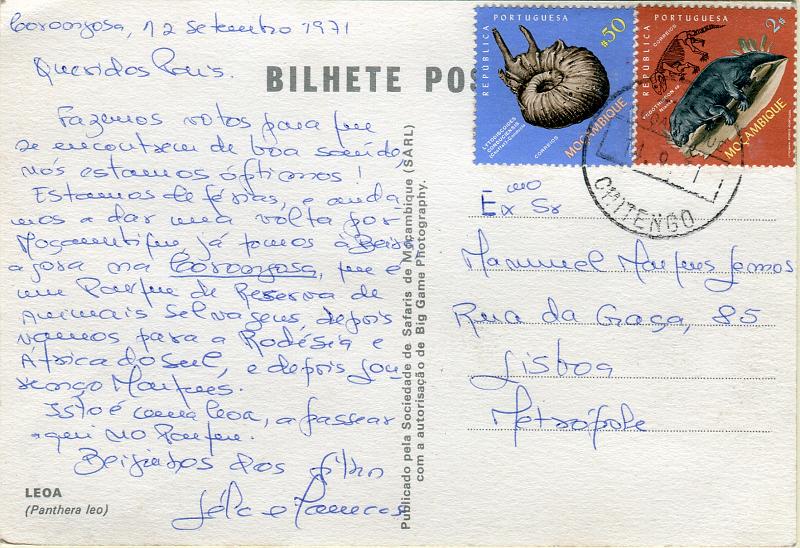 Gorongosa, 12 setembro 1971
Queridos Pais.
BILHETE POS
Fazemos votos para que
se encontrem de boa saúde,
nós estamos óptimos!
Estamos de férias, e anda
mos a dar uma volta por
Moçambique, já fomos à Beira,
agora na Gorongosa, que é
um Parque de Reserva de
Animais Selvagens, depois
vamos para a Rodésia e
África do Sul, e depois Lou
renço Marques.
Isto é uma leoa, a passear
aqui no Parque.
Beijinhos dos filhos
LEOA
(Panthera leo)
Publicado pela Sociedade de Safaris de Moçambique (SARL)
com a autorisação de Big Game Photography.
REPÚBLICA PORTUGUESA
$50
LYTODISCOIDES
CONDUCIENSIS
CORREIOS
MOÇAMBIQUE
REPÚBLICA PORTUGUESA
2$
CORREIOS
MOÇAMBIQUE
CHITENGO
Ex mo Sr
Manuel Marques Lemos
Rua da Graça, 85
Lisboa
Metrópole